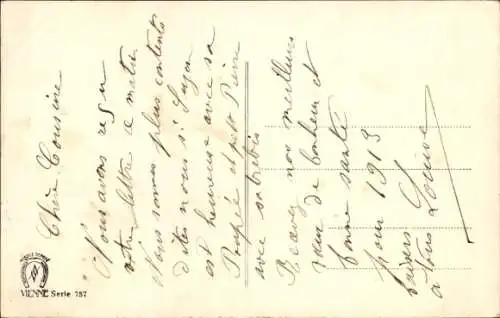 Chère Cousine
Nous avons reçu
votre lettre ce matin
Nous sommes plus contents
dites nous si Suzon
est heureuse avec sa
Poupée et petit Pierre
avec sa brebis
Recevez nos meilleurs
vœux de bonheur et
bonne santé
pour 1913
baisers
à tous Louise
VIENNE Serie 787